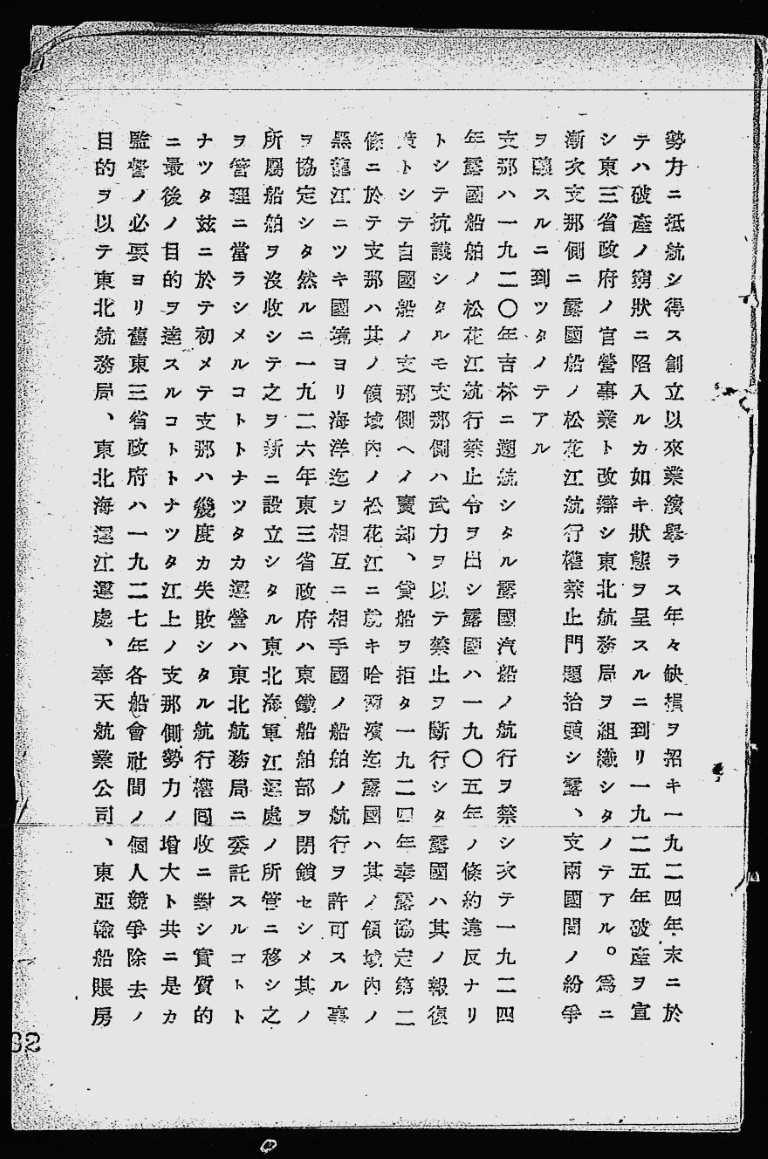 勢力ニ抵航シ得ス創立以來業績擧ラス年々缺損ヲ招キ一九二四年末ニ於
テハ破產ノ窮狀ニ陷入ルカ如キ狀態ヲ呈スルニ到リ一九二五年破產ヲ宣
シ東三省政府ノ官營事業ト改辯シ東北航務局ヲ組織シタノテアル。爲ニ
漸次支那側ニ露國船ノ松花江航行權禁止門題抬頭シ露、支兩國間ノ紛爭
ヲ釀スルニ到ツタノテアル
支那ハ一九二〇年吉林ニ遡航シタル露國汽船ノ航行ヲ禁シ次テ一九二四
年露國船舶ノ松花江航行禁止令ヲ出シ露國ハ一九〇五年ノ條約違反ナリ
トシテ抗議シタルモ支那側ハ武力ヲ以テ禁止ヲ斷行シタ露國ハ其ノ報復
トシテ自國船ノ支那側ヘノ賣却、貸船ヲ拒タ一九二四年奉露協定第二
條ニ於テ支那ハ其ノ領域內ノ松花江ニ就キ哈爾濱迄露國ハ其ノ領域內ノ
黑龍江ニツキ國境ヨリ海洋迄ヲ相互ニ相手國ノ船舶ノ航行ヲ許可スル事
ヲ協定シタ然ルニ一九二六年東三省政府ハ東鐵船舶部ヲ閉鎖セシメ其ノ
所屬船舶ヲ沒收シテ之ヲ新ニ設立シタル東北海軍江運處ノ所管ニ移シ之
ヲ管理ニ當ラシメルコトトナツタカ運營ハ東北航務局ニ委託スルコトト
ナツタ玆ニ於テ初メテ支那ハ幾度カ失敗シタル航行權囘收ニ對シ實質的
ニ最後ノ目的ヲ達スルコトトナツタ江上ノ支那側勢力ノ增大ト共ニ是カ
監督ノ必要ヨリ舊東三省政府ハ一九二七年各船會社間ノ個人競爭除去ノ
目的ヲ以テ東北航務局、東北海運江運處、奉天航業公司、東亞輪船賬房
32